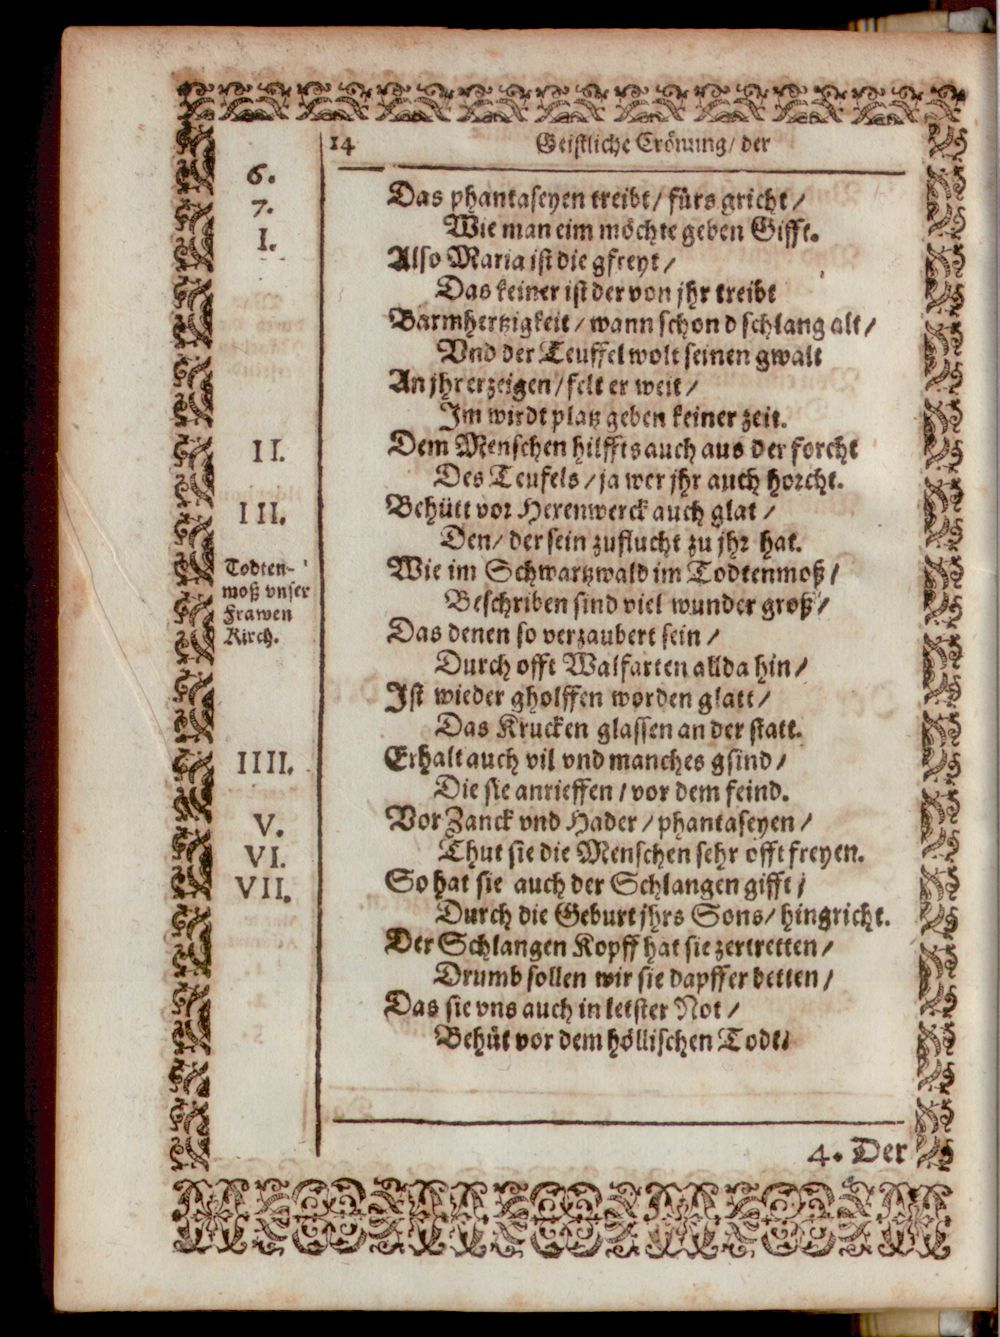 14 Geistliche Crönung/ der
6.
Das phantaseyen treibt/ fürs gricht/
7.
Wie man eim möchte geben Gifft.
I.
Also Maria ist die gfreyt/
Das keiner ist der von jhr treibt
Barmhertzigkeit/ wann schon d schlang alt/
Vnd der Teuffel wolt seinen gwalt
An jhr erzeigen/ felt er weit/
Im wirdt platz geben keiner zeit.
II.
Dem Menschen hilffts auch aus der forcht
Des Teufels/ ja wer jhr auch horcht.
III.
Behütt vor Hexenwerck auch glat/
Den/ der sein zuflucht zu jhr hat.
Todten-
moß vnser
Frawen
Kirch.
Wie im Schwartzwald im Todtenmoß/
Beschriben sind viel wunder groß/
Das denen so verzaubert sein/
Durch offt Walfarten allda hin/
Ist wieder gholffen worden glatt/
Das Krucken glassen an der statt.
IIII.
Erhalt auch vil vnd manches gsind/
Die sie anrieffen/ vor dem feind.
V.
Vor Zanck vnd Hader/ phantaseyen/
VI.
Thut sie die Menschen sehr offt freyen.
VII.
So hat sie auch der Schlangen gifft/
Durch die Geburt jhrs Sons/ hingricht.
Der Schlangen Kopff hat sie zertretten/
Drumb sollen wir sie dapffer betten/
Das sie vns auch in letster Not/
Behüt vor dem höllischen Todt/
4. Der